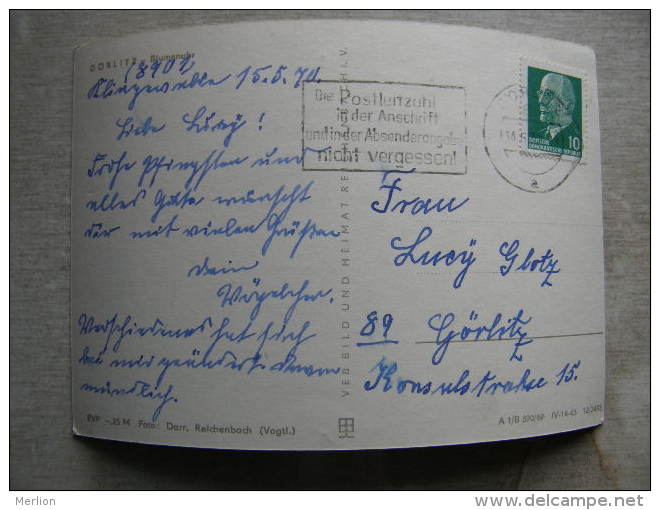 GÖRLITZ · Blumenuhr
(8901)
Klingewalde 15.5.70.
Liebe Lucy!
Frohe Pfingsten und
alles Gute wünscht
dir mit vielen Grüßen
Dein
Vögelchen.
Verschiedenes hat sich
bei mir geändert. Dann
mündlich.
EVP –,25 M Foto: Darr, Reichenbach (Vogtl.)
VEB BILD UND HEIMAT REICHENBACH I. V.
Die Postleitzahl
in der Anschrift
und in der Absenderangabe
nicht vergessen!
10
DEUTSCHE
DEMOKRATISCHE REPUBLIK
a
Frau
Lucy Glotz
89 Görlitz
Konsulstraße 15.
A 1/B 590/69 IV-14-45
Merlion
www.delcampe.net